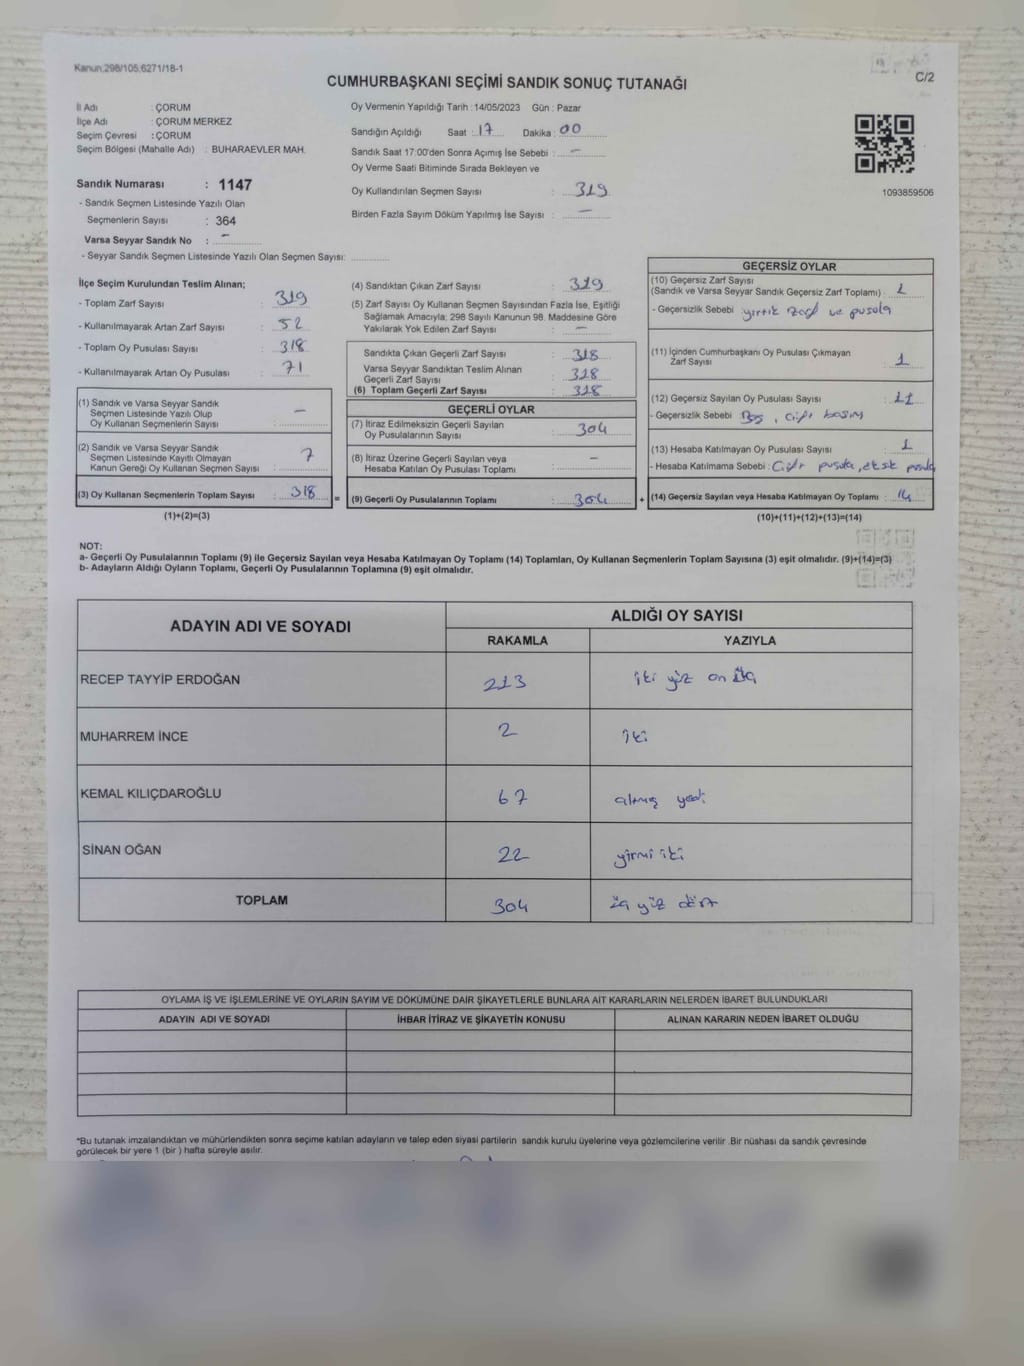 Kanun:298/105,6271/18-1
C/2
CUMHURBAŞKANI SEÇİMİ SANDIK SONUÇ TUTANAĞI
İl Adı : ÇORUM
İlçe Adı : ÇORUM MERKEZ
Seçim Çevresi : ÇORUM
Seçim Bölgesi (Mahalle Adı) : BUHARAEVLER MAH.
Sandık Numarası : 1147
- Sandık Seçmen Listesinde Yazılı Olan
Seçmenlerin Sayısı : 364
Varsa Seyyar Sandık No : -
- Seyyar Sandık Seçmen Listesinde Yazılı Olan Seçmen Sayısı:
Oy Vermenin Yapıldığı Tarih : 14/05/2023 Gün : Pazar
Sandığın Açıldığı Saat : 17 Dakika : 00
Sandık Saat 17:00'den Sonra Açımış İse Sebebi : -
Oy Verme Saati Bitiminde Sırada Bekleyen ve
Oy Kullandırılan Seçmen Sayısı : 319
Birden Fazla Sayım Döküm Yapılmış İse Sayısı : -
1093859506
İlçe Seçim Kurulundan Teslim Alınan;
- Toplam Zarf Sayısı : 319
- Kullanılmayarak Artan Zarf Sayısı : 52
- Toplam Oy Pusulası Sayısı : 318
- Kullanılmayarak Artan Oy Pusulası : 71
(1) Sandık ve Varsa Seyyar Sandık
Seçmen Listesinde Yazılı Olup
Oy Kullanan Seçmenlerin Sayısı : -
(2) Sandık ve Varsa Seyyar Sandık
Seçmen Listesinde Kayıtlı Olmayan
Kanun Gereği Oy Kullanan Seçmen Sayısı : 7
(3) Oy Kullanan Seçmenlerin Toplam Sayısı : 318
(1)+(2)=(3)
=
(4) Sandıktan Çıkan Zarf Sayısı : 319
(5) Zarf Sayısı Oy Kullanan Seçmen Sayısından Fazla İse, Eşitliği
Sağlamak Amacıyla; 298 Sayılı Kanunun 98. Maddesine Göre
Yakılarak Yok Edilen Zarf Sayısı : -
Sandıkta Çıkan Geçerli Zarf Sayısı : 318
Varsa Seyyar Sandıktan Teslim Alınan
Geçerli Zarf Sayısı : 318
(6) Toplam Geçerli Zarf Sayısı : 318
GEÇERLİ OYLAR
(7) İtiraz Edilmeksizin Geçerli Sayılan
Oy Pusulalarının Sayısı : 304
(8) İtiraz Üzerine Geçerli Sayılan veya
Hesaba Katılan Oy Pusulası Toplamı : -
(9) Geçerli Oy Pusulalarının Toplamı : 304
+
GEÇERSİZ OYLAR
(10) Geçersiz Zarf Sayısı
(Sandık ve Varsa Seyyar Sandık Geçersiz Zarf Toplamı) : 1
- Geçersizlik Sebebi : yırtık zarf ve pusula
(11) İçinden Cumhurbaşkanı Oy Pusulası Çıkmayan
Zarf Sayısı : 1
(12) Geçersiz Sayılan Oy Pusulası Sayısı : 11
- Geçersizlik Sebebi : Boş, çift basım
(13) Hesaba Katılmayan Oy Pusulası Sayısı : 1
- Hesaba Katılmama Sebebi : Çift pusula, eksik pusula
(14) Geçersiz Sayılan veya Hesaba Katılmayan Oy Toplamı : 14
(10)+(11)+(12)+(13)=(14)
NOT:
a- Geçerli Oy Pusulalarının Toplamı (9) ile Geçersiz Sayılan veya Hesaba Katılmayan Oy Toplamı (14) Toplamları, Oy Kullanan Seçmenlerin Toplam Sayısına (3) eşit olmalıdır. (9)+(14)=(3)
b- Adayların Aldığı Oyların Toplamı, Geçerli Oy Pusulalarının Toplamına (9) eşit olmalıdır.
ADAYIN ADI VE SOYADI ALDIĞI OY SAYISI
RAKAMLA YAZIYLA
RECEP TAYYİP ERDOĞAN 213 iki yüz on üç
MUHARREM İNCE 2 iki
KEMAL KILIÇDAROĞLU 67 altmış yedi
SİNAN OĞAN 22 yirmi iki
TOPLAM 304 üç yüz dört
OYLAMA İŞ VE İŞLEMLERİNE VE OYLARIN SAYIM VE DÖKÜMÜNE DAİR ŞİKAYETLERLE BUNLARA AİT KARARLARIN NELERDEN İBARET BULUNDUKLARI
ADAYIN ADI VE SOYADI İHBAR İTİRAZ VE ŞİKAYETİN KONUSU ALINAN KARARIN NEDEN İBARET OLDUĞU
*Bu tutanak imzalandıktan ve mühürlendikten sonra seçime katılan adayların ve talep eden siyasi partilerin sandık kurulu üyelerine veya gözlemcilerine verilir .Bir nüshası da sandık çevresinde
görülecek bir yere 1 (bir ) hafta süreyle asılır.